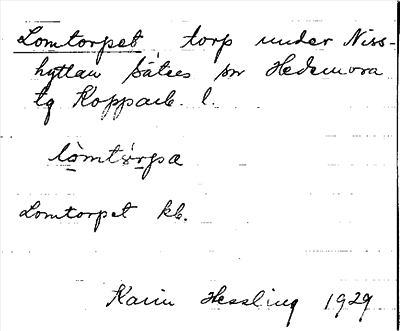 Lomtorpet, torp under Niss-
hyttan Säters sn Hedemora
tg Kopparb. l.
lòmtòrpa
Lomtorpet kb.
Karin Hessling 1929.